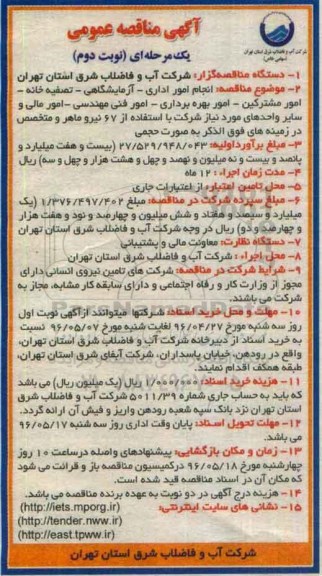 آگهی مناقصه عمومی
یک مرحله‌ای (نوبت دوم)
شرکت آب و فاضلاب شرق استان تهران
(سهامی خاص)
۱- دستگاه مناقصه‌گزار: شرکت آب و فاضلاب شرق استان تهران
۲- موضوع مناقصه: انجام امور اداری - آزمایشگاهی - تصفیه خانه -
امور مشترکین - امور بهره برداری - امور فنی مهندسی -امور مالی و
سایر واحدهای مورد نیاز شرکت با استفاده از ۶۷ نیرو ماهر و متخصص
در زمینه های فوق الذکر به صورت حجمی
۳- مبلغ برآورداولیه: ۲۷/۵۲۹/۹۴۸/۰۴۳ (بیست و هفت میلیارد و
پانصد و بیست و نه میلیون و نهصد و چهل و هشت هزار و چهل و سه) ریال
۴- مدت زمان اجراء: ۱۲ ماه
۵- محل تامین اعتبار: از اعتبارات جاری
۶- مبلغ سپرده شرکت در مناقصه: مبلغ ۱/۳۷۶/۴۹۷/۴۰۲ (یک
میلیارد و سیصد و هفتاد و شش میلیون و چهارصد و نود و هفت هزار
و چهارصد و دو) ریال در وجه شرکت آب و فاضلاب شرق استان تهران
۷- دستگاه نظارت: معاونت مالی و پشتیبانی
۸- محل اجراء : شرکت آب و فاضلاب شرق استان تهران
۹- شرایط شرکت در مناقصه: شرکت های تامین نیروی انسانی دارای
مجوز از وزارت کار و رفاه اجتماعی و دارای سابقه کار مشابه، مجاز به
شرکت می باشند.
۱۰- مهلت و محل خرید اسناد: شرکتها میتوانند ازآگهی نوبت اول
روز سه شنبه مورخ ۹۶/۰۴/۲۷ لغایت شنبه مورخ ۹۶/۰۵/۰۷ نسبت
به خرید اسناد از دبیرخانه شرکت آب و فاضلاب شرق استان تهران،
واقع در رودهن، خیابان پاسداران، شرکت آبفای شرق استان تهران،
طبقه همکف اقدام نمایند.
۱۱- هزینه خرید اسناد: ۱/۰۰۰/۰۰۰ ریال (یک میلیون ریال) می باشد
که باید به حساب جاری شماره ۵۰۱۱/۳۹ شرکت آب و فاضلاب شرق
استان تهران نزد بانک سپه شعبه رودهن واریز و فیش آن ارائه گردد.
۱۲- مهلت تحویل اسناد: پایان وقت اداری روز سه شنبه ۹۶/۰۵/۱۷
می باشد.
۱۳- زمان و مکان بازگشایی: پیشنهادهای واصله درساعت ۱۰ روز
چهارشنبه مورخ ۹۶/۰۵/۱۸ درکمیسیون مناقصه باز و قرائت می شود
که مکان آن در اسناد مناقصه قید شده است.
۱۴- هزینه درج آگهی در دو نوبت به عهده برنده مناقصه می باشد.
۱۵- نشانی های سایت اینترنتی: (http://iets.mporg.ir)
(http://tender.nww.ir)
(http://east.tpww.ir)
شرکت آب و فاضلاب شرق استان تهران